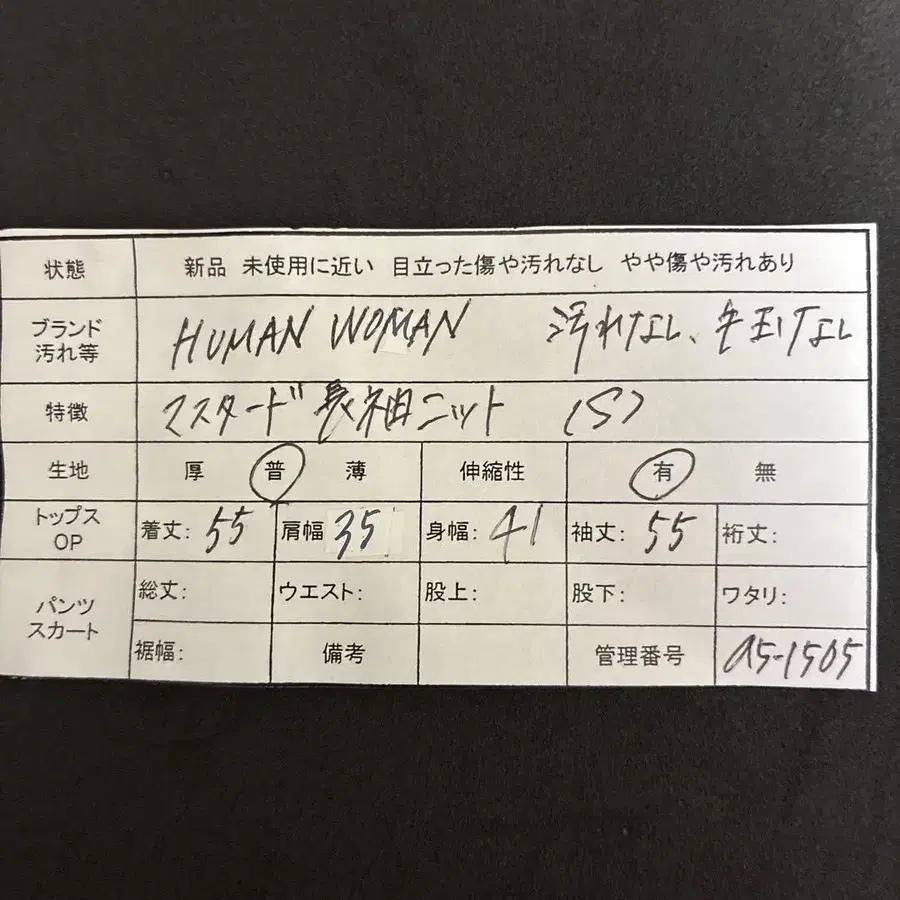 状態 新品 未使用に近い 目立った傷や汚れなし やや傷や汚れあり
ブランド 汚れ等 HUMAN WOMAN 汚れなし、毛玉なし
特徴 マスタード 長袖ニット (S)
生地 厚 普 薄 伸縮性 有 無
トップス OP 着丈: 55 肩幅 35 身幅: 41 袖丈: 55 裄丈:
パンツ スカート 総丈: ウエスト: 股上: 股下: ワタリ:
裾幅: 備考 管理番号 a5-1505